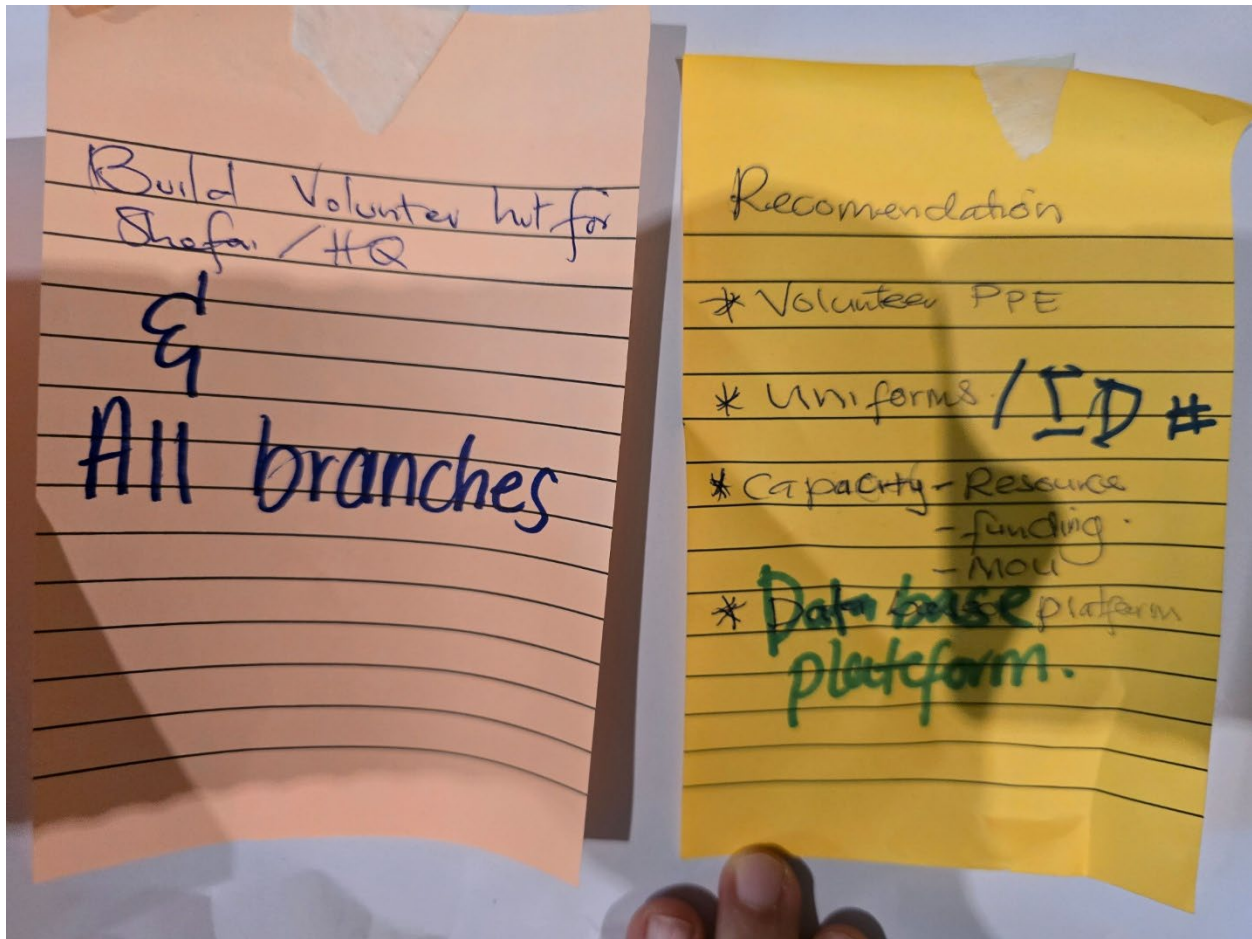 Build Volunter hut for
Shefa /HQ
&
All branches
Recomendation
* Volunteer PPE
* Uniforms /ID #
* Capacity - Resource
- funding.
- MOU
* Data base platform
plateform.